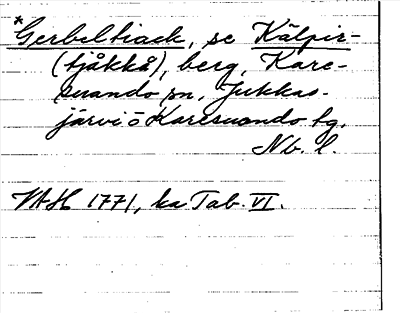 *Gerbeltiack, se Kälpir-
(tjåkkå), berg, Kare-
suando sn, Jukkas-
järvi o Karesuando tg,
Nb. l.
VAH 1771, ka Tab. VI.